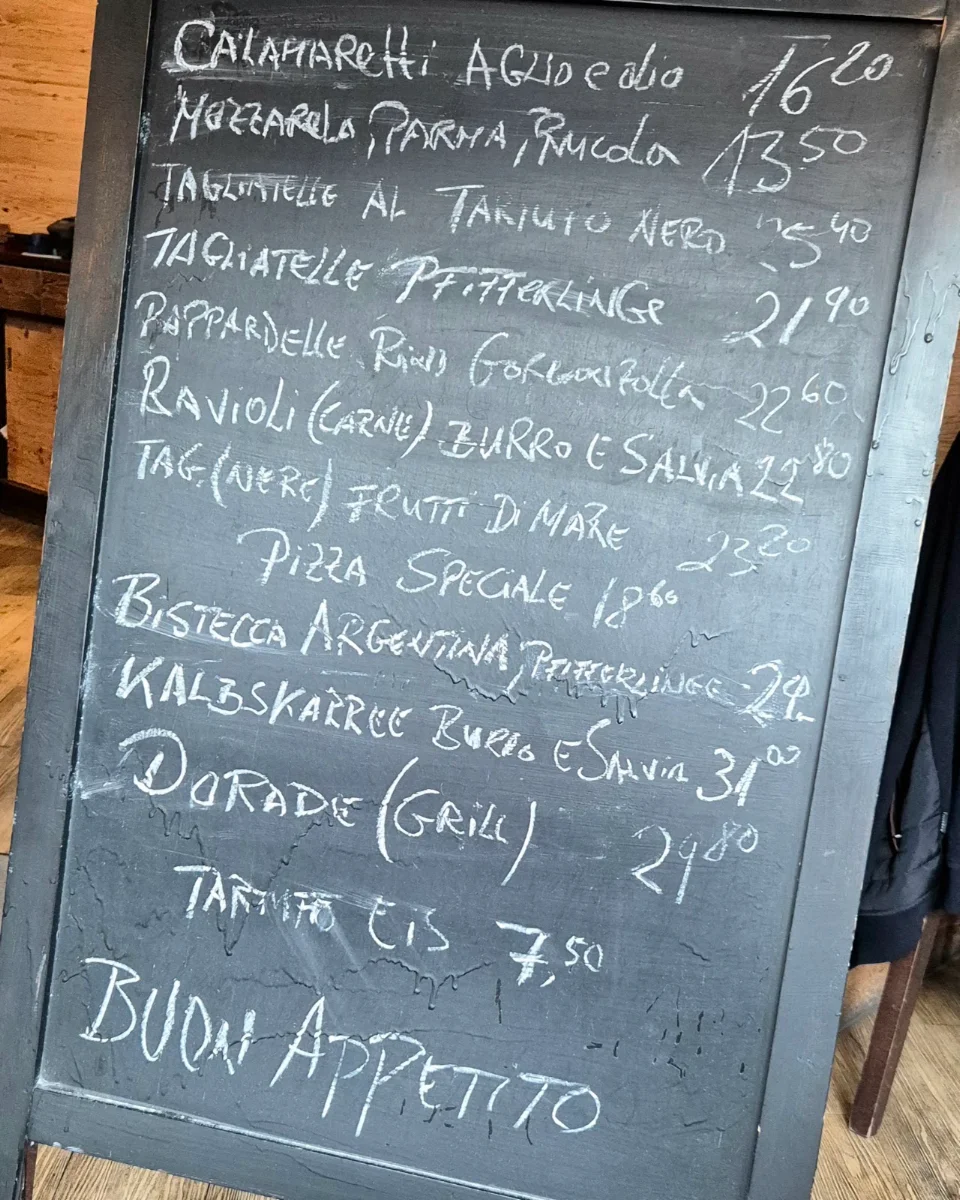 CALAMAREttI AGLIO e olio 16 20
MOZZARELLA, PARMA, RUCOLA 13 50
TAGLIATELLE AL TARTUFO NERO 40
TAGLIATELLE PFIFFERLINGE 21 90
PAPPARDELLE GORGONZOLLA 22 60
RAVIOLI (CARNE) BURRO E SALVIA 22 80
TAG. (NERE) FRUTTI DI MARE 23 20
PIZZA SPECIALE 18 60
BISTECCA ARGENTINA, PFIFFERLINGE
KALBSKARREE BURRO E SALVIA 31 00
DORADE (GRILL) 29 80
TARTUFO EIS 7,50
BUON APPETITO